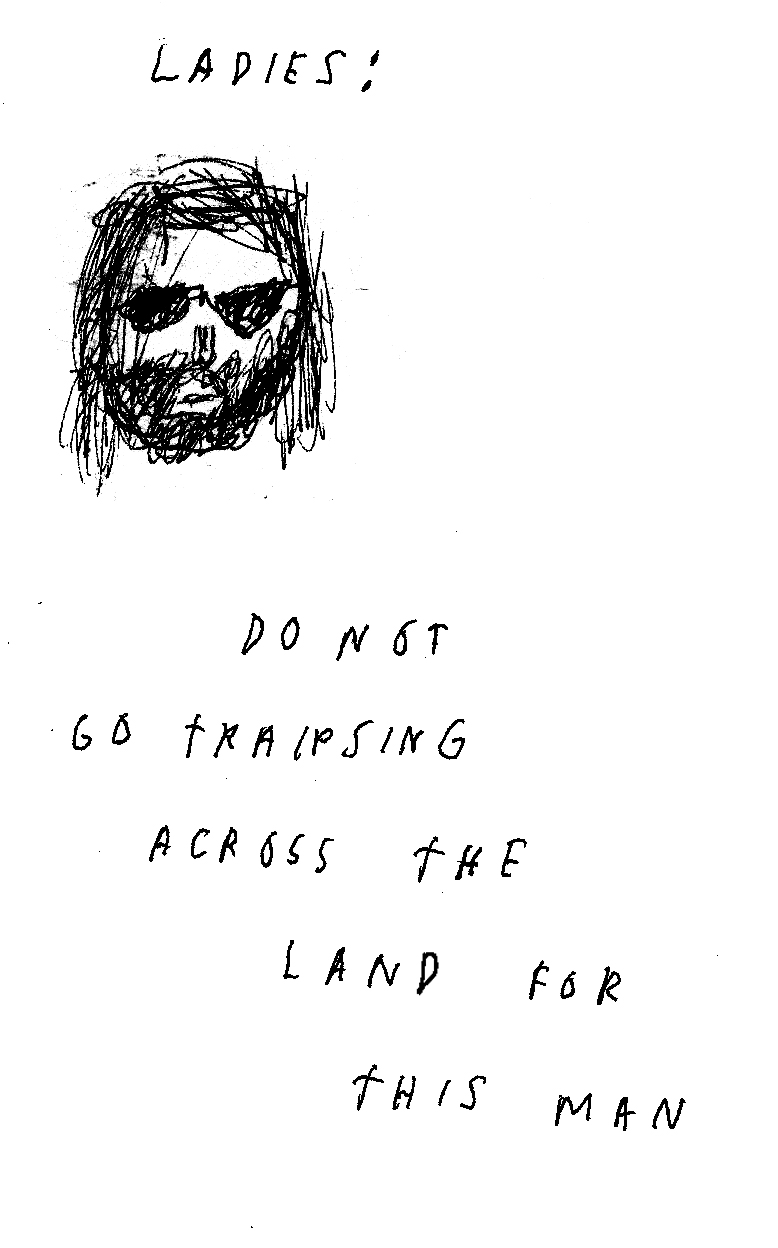 LADIES:
DO NOT
GO TRAIPSING
ACROSS THE
LAND FOR
THIS MAN